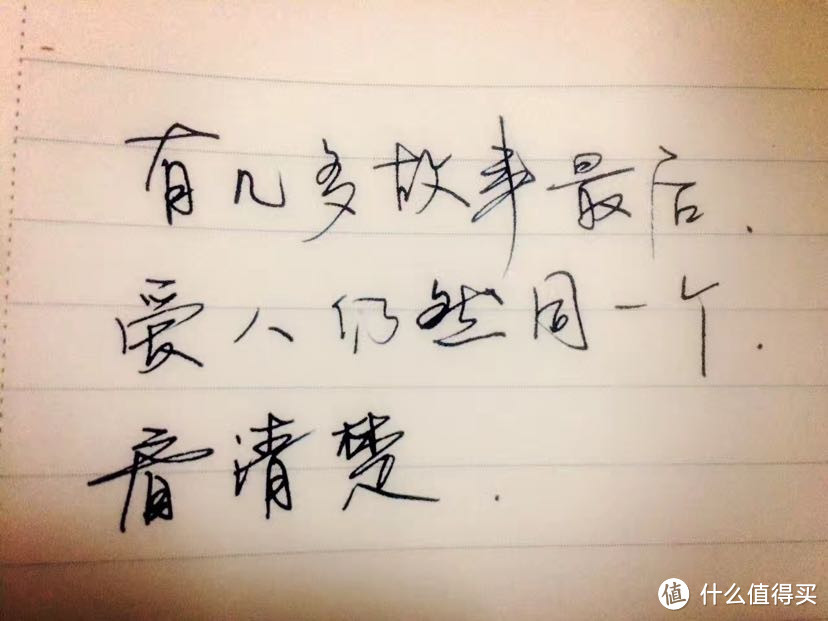 有几多故事最后.
爱人仍然同一个.
看清楚.
值 什么值得买